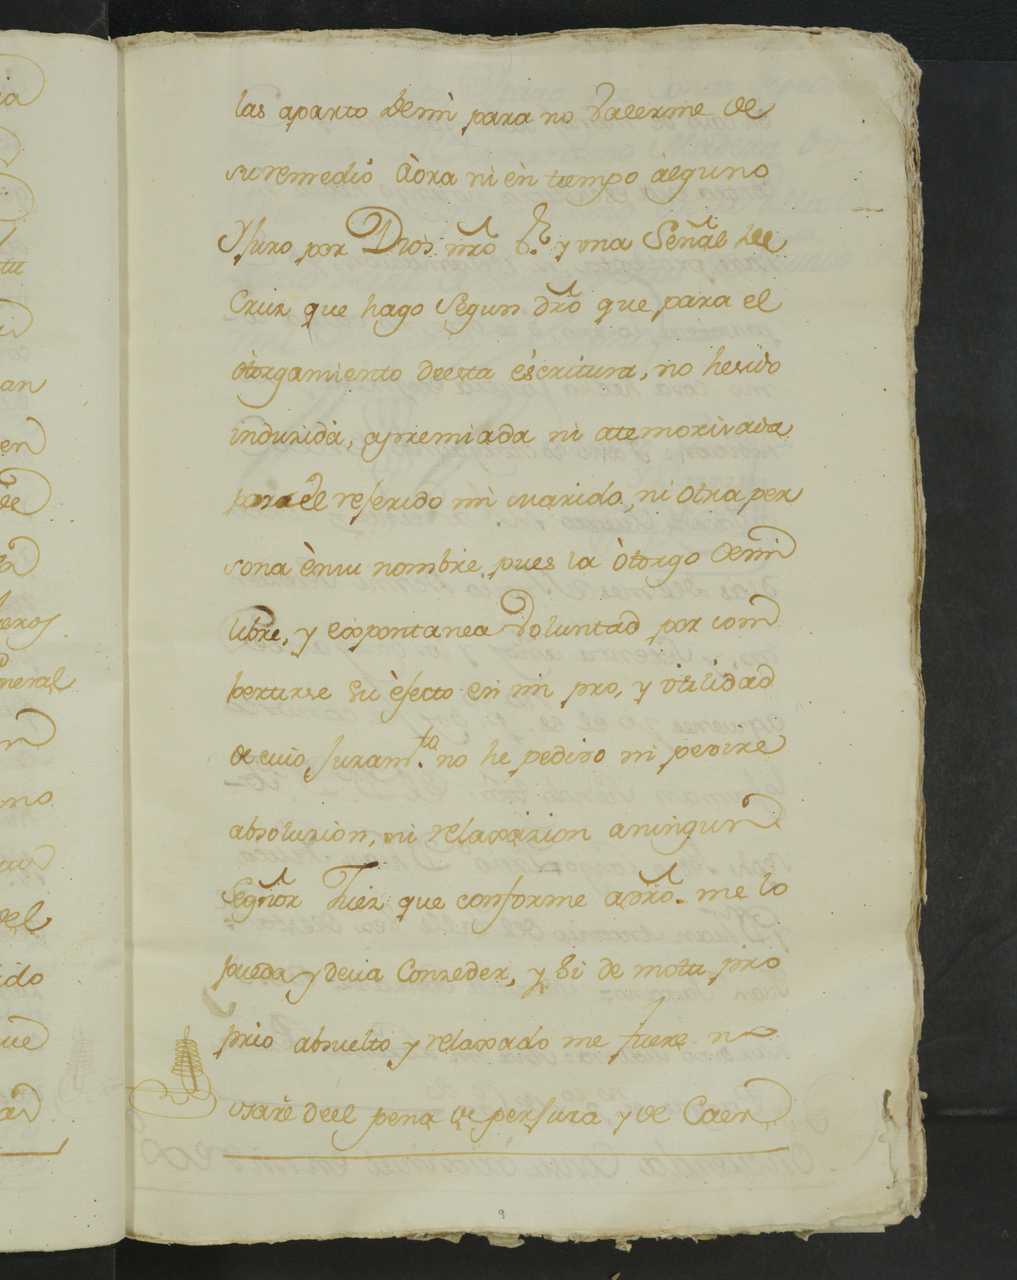 las aparto demi para no Valerme de
su remedio Aora ni en tiempo alguno
Y Juro por Dios nrõ S.r y una Señal de
Cruz que hago Segun drõ que para el
otorgamiento deesta escritura, no hesido
induzida, apremiada ni atemorizada
por el referido mi marido, ni otra per
sona ènsu nombre pues la òtorgo demi
libre, y expontanea Voluntad por com
bertirse su èfecto en mi pro, y vtilidad
de cuio Juram.to no he pedido ni pedire
absoluzion, ni relaxazion aningun
Señor Juez que conforme adrõ. me lo
pueda y deva Conzeder, y Si de motu pro
prio absuelto y relaxado me fuere no
vsarè deel pena de perjura y de Caer